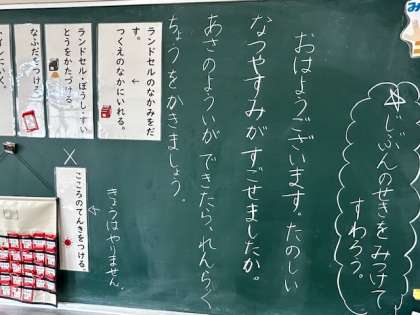 ☆じぶんのせきをみつけて
すわろう。
おはようございます。たのしい
なつやすみがすごせましたか。
あさのよういができたら、れんらく
ちょうをかきましょう。
ランドセルのなかみをだ
す。
↓
つくえのなかにいれる。
ランドセル・ぼうし・すい
とうをかたづける。
なふだをつける。
トイレにいく。
×
こころのてんきをつける。
←きょうはやりません。